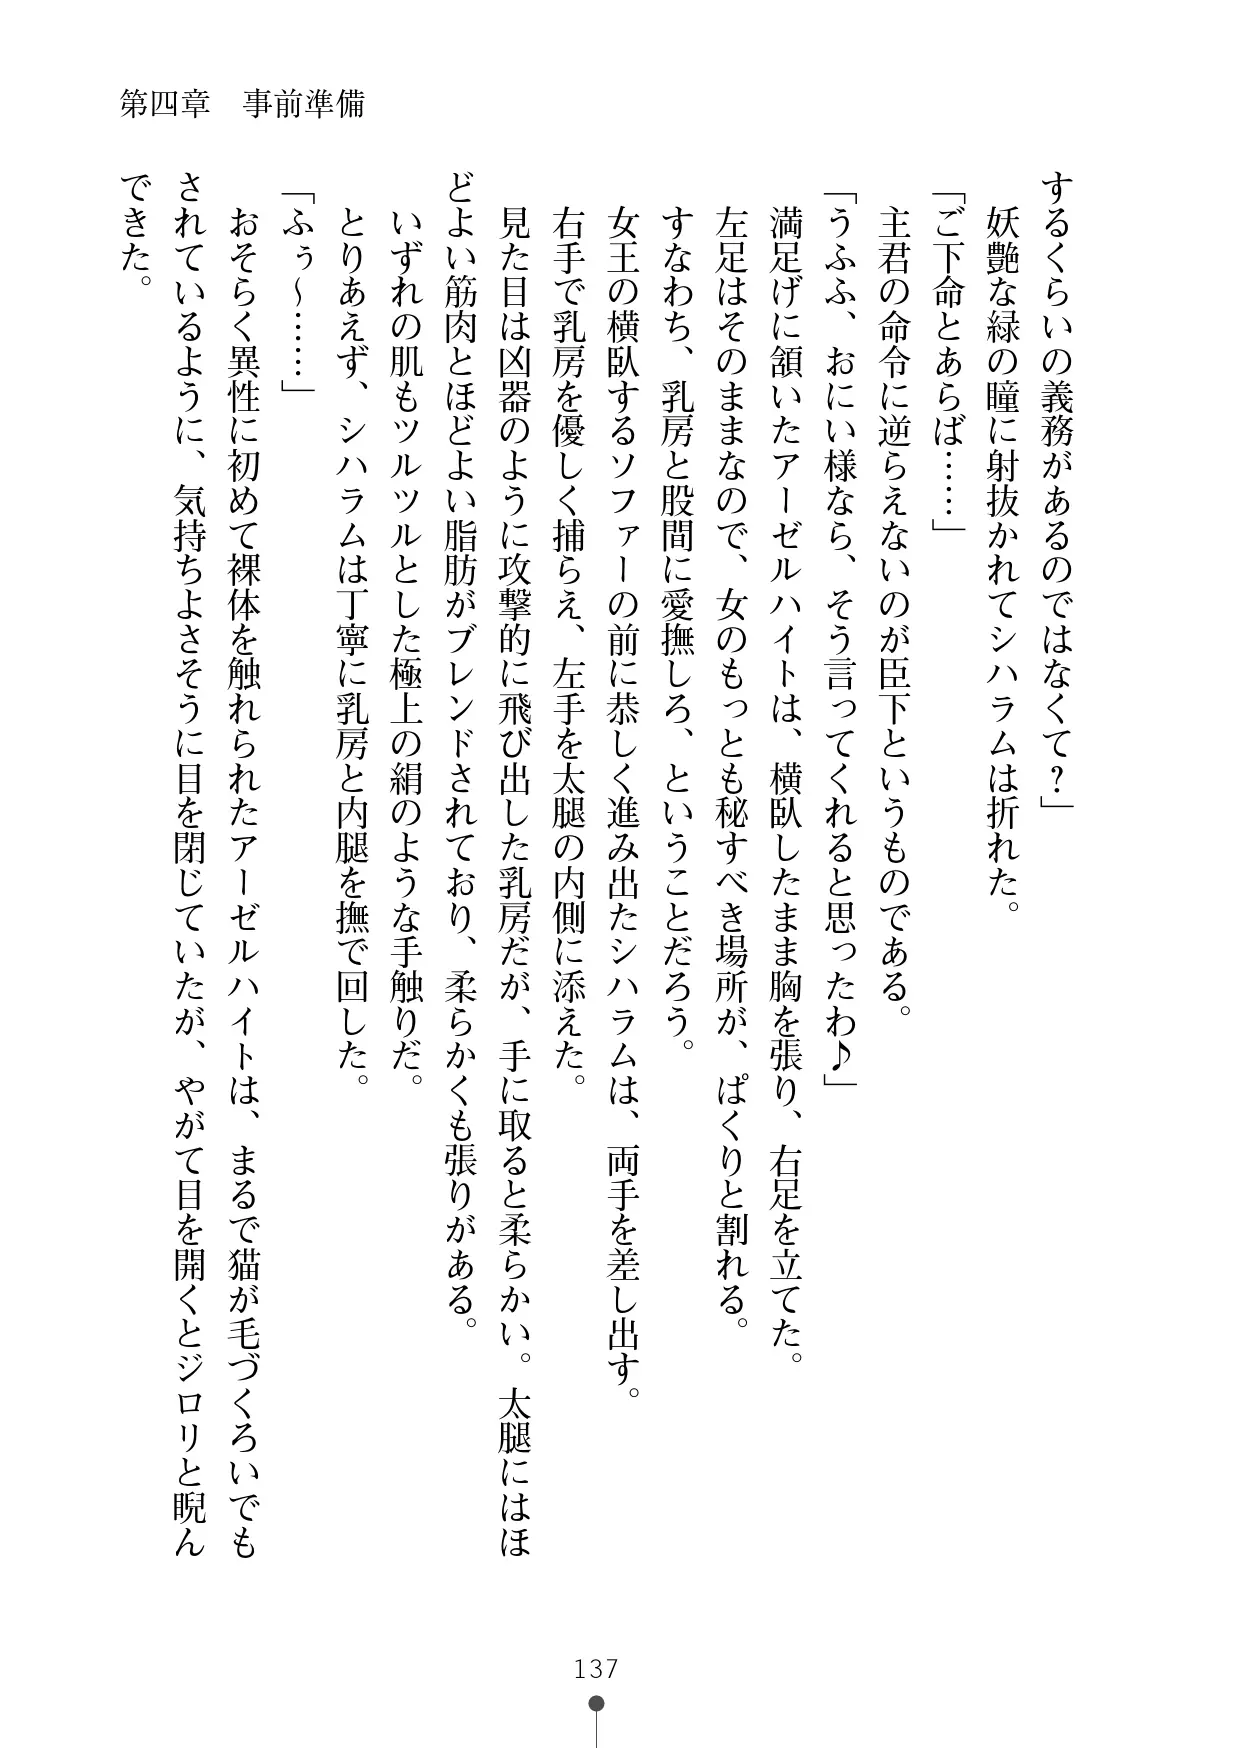 第四章　事前準備
するくらいの義務があるのではなくて？」
　妖艶な緑の瞳に射抜かれてシハラムは折れた。
「ご下命とあらば……」
　主君の命令に逆らえないのが臣下というものである。
「うふふ、おにい様なら、そう言ってくれると思ったわ♪」
　満足げに頷いたアーゼルハイトは、横臥したまま胸を張り、右足を立てた。
　左足はそのままなので、女のもっとも秘すべき場所が、ぱくりと割れる。
　すなわち、乳房と股間に愛撫しろ、ということだろう。
　女王の横臥するソファーの前に恭しく進み出たシハラムは、両手を差し出す。
　右手で乳房を優しく捕らえ、左手を太腿の内側に添えた。
　見た目は凶器のように攻撃的に飛び出した乳房だが、手に取ると柔らかい。太腿にはほ
どよい筋肉とほどよい脂肪がブレンドされており、柔らかくも張りがある。
　いずれの肌もツルツルとした極上の絹のような手触りだ。
　とりあえず、シハラムは丁寧に乳房と内腿を撫で回した。
「ふぅ～……」
　おそらく異性に初めて裸体を触れられたアーゼルハイトは、まるで猫が毛づくろいでも
されているように、気持ちよさそうに目を閉じていたが、やがて目を開くとジロリと睨ん
できた。
137